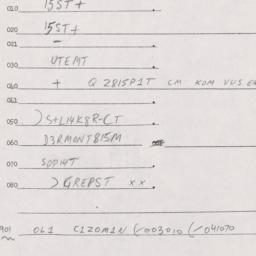 010 15ST+
020 15ST+
021 –
030 UTEMT
040 + Q 2815P1T CM KOM VUS
041
050 )S+L14K8R-CT
060 D3RMONT815M
070 SDD14T
080 >GREPST xx.
901 061 C1ZOM1N (/003010 (/041070